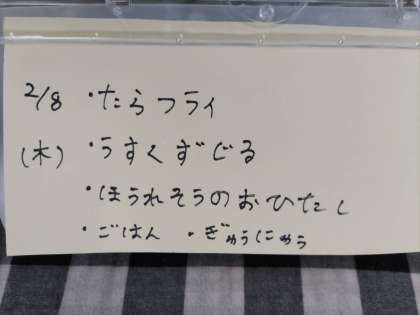 2/8 ・たらフライ
(木) ・うすくずじる
・ほうれそうのおひたし
・ごはん ・ぎゅうにゅう